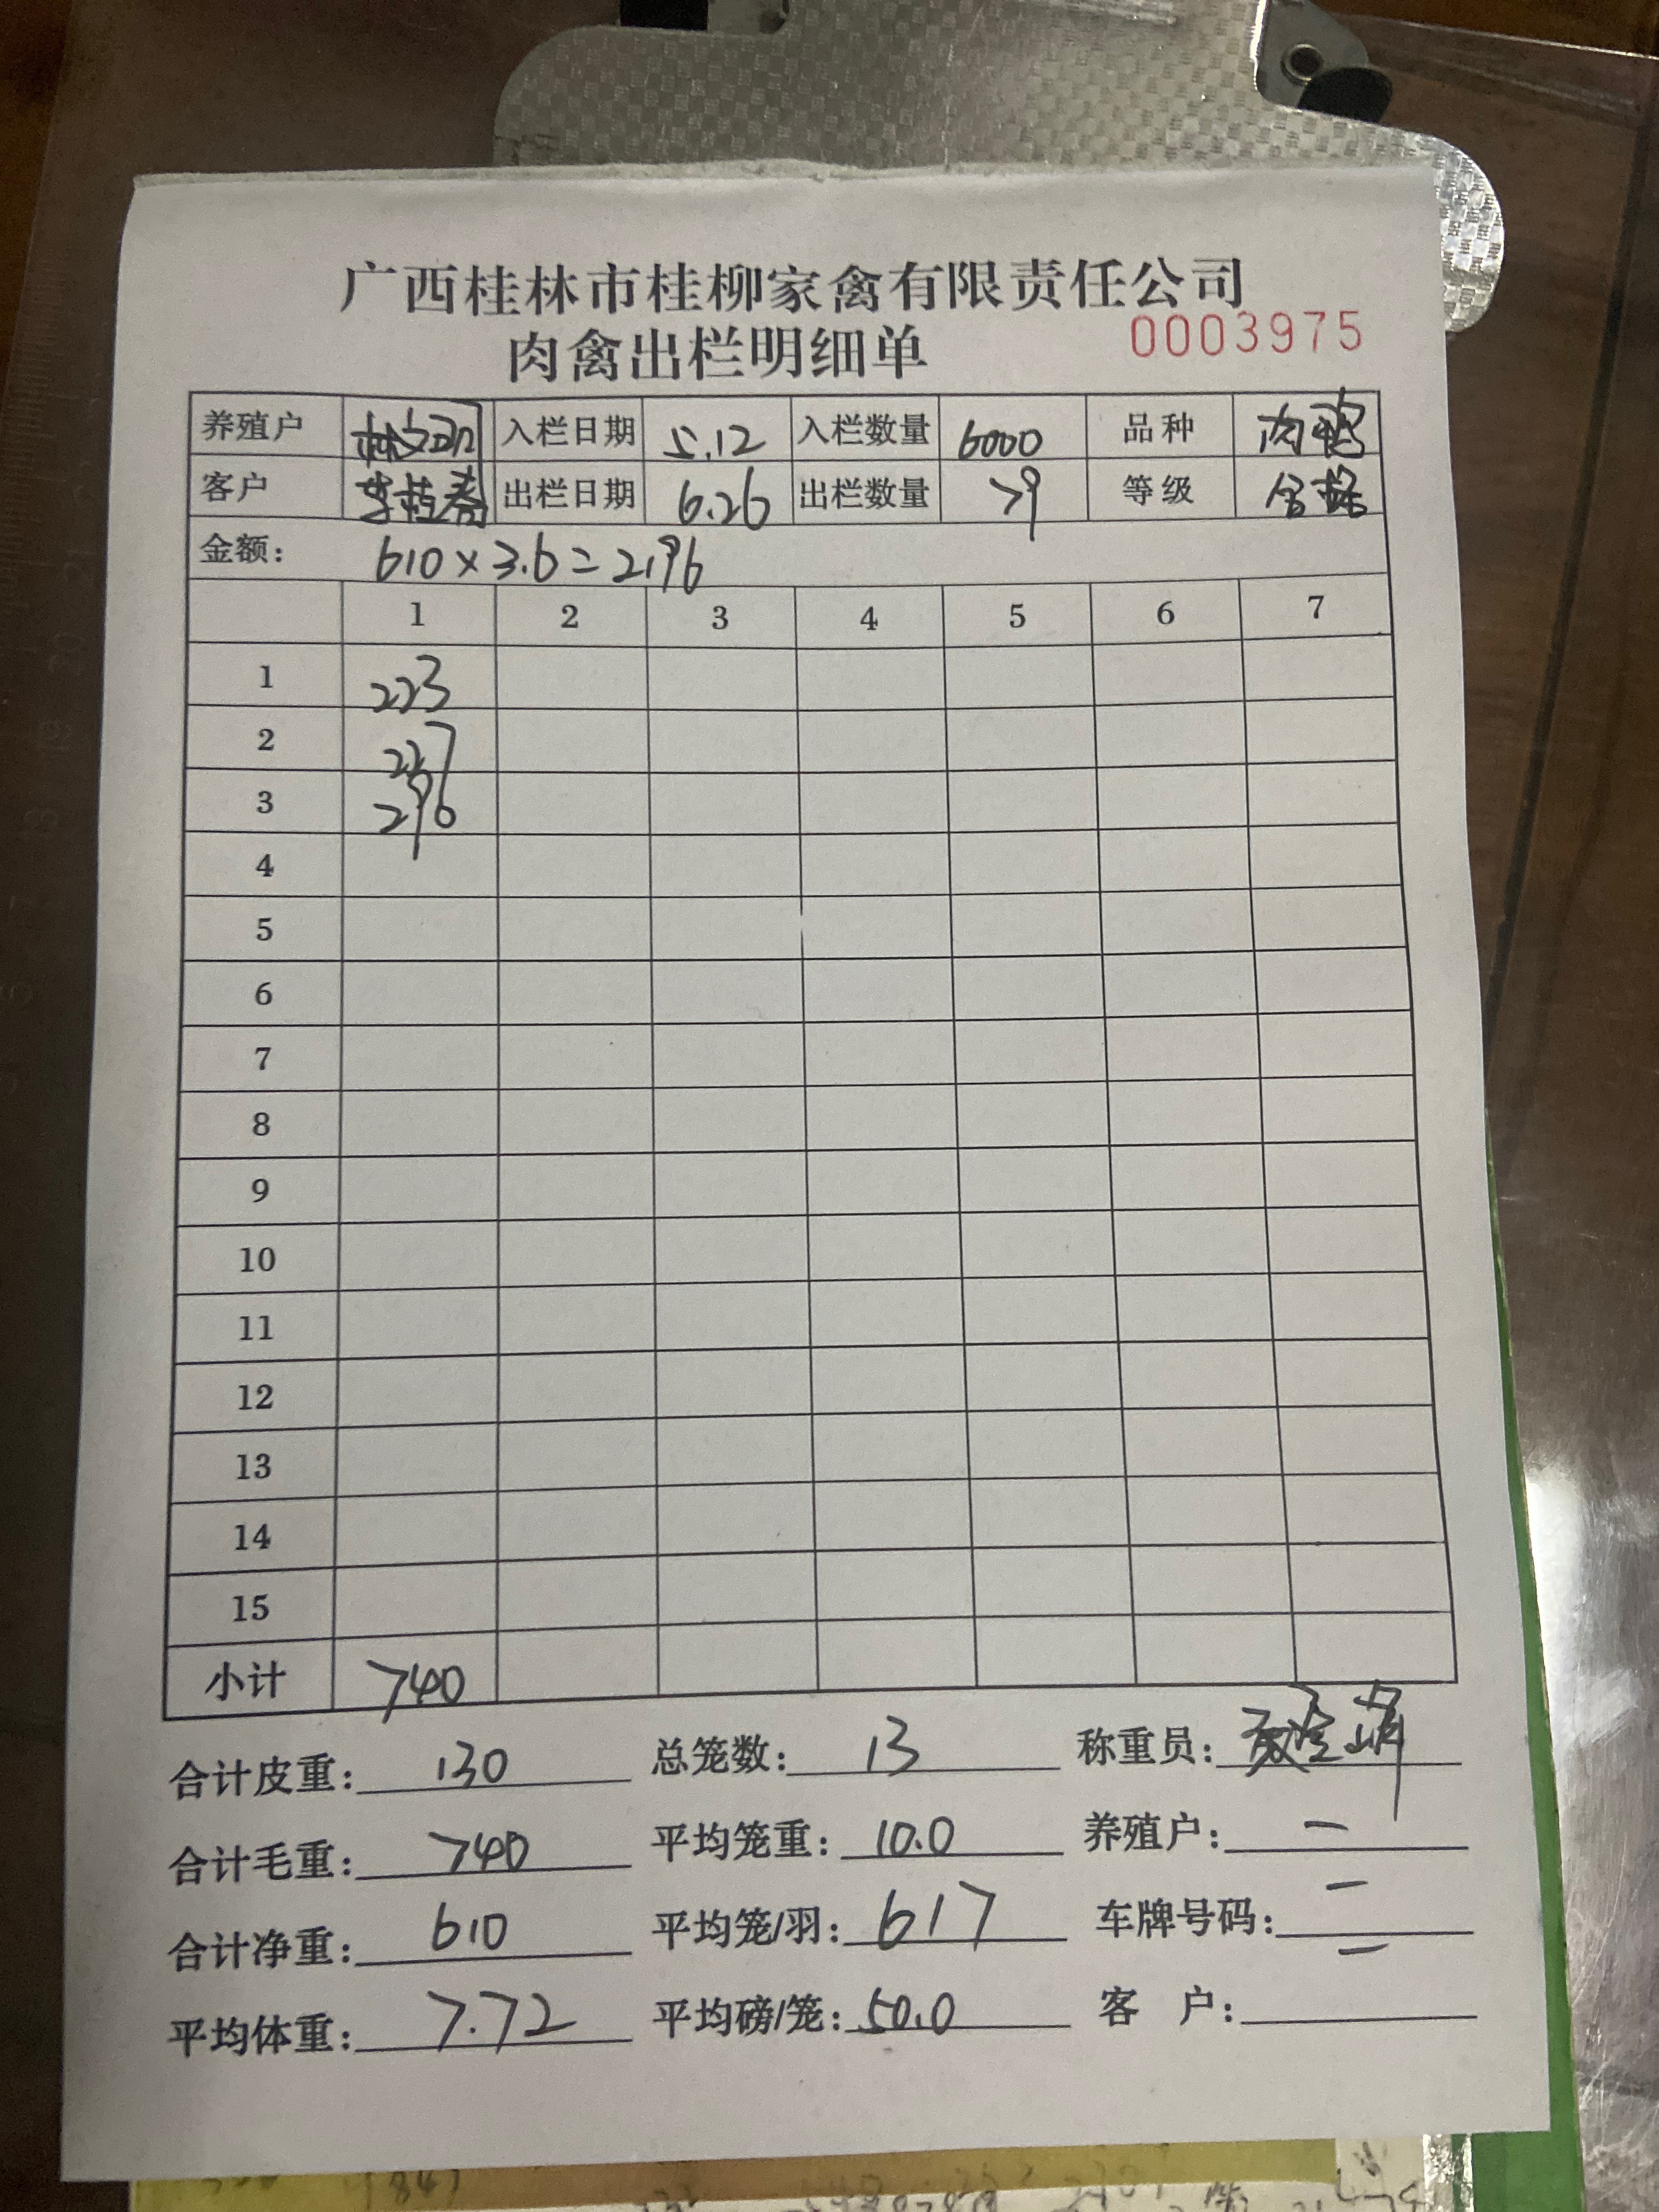 广西桂林市桂柳家禽有限责任公司
肉禽出栏明细单 0003975
养殖户 入栏日期 5.12 入栏数量 6000 品种 肉鸭
客户 李桂春 出栏日期 6.26 出栏数量 79 等级 合格
金额： 610×3.6=2196
1 2 3 4 5 6 7
1 223
2 227
3 296
4
5
6
7
8
9
10
11
12
13
14
15
小计 740
合计皮重： 130 总笼数： 13 称重员：
合计毛重： 740 平均笼重： 10.0 养殖户： 一
合计净重： 610 平均笼/羽： 617 车牌号码： 一
平均体重： 7.72 平均磅/笼： 50.0 客 户： 一